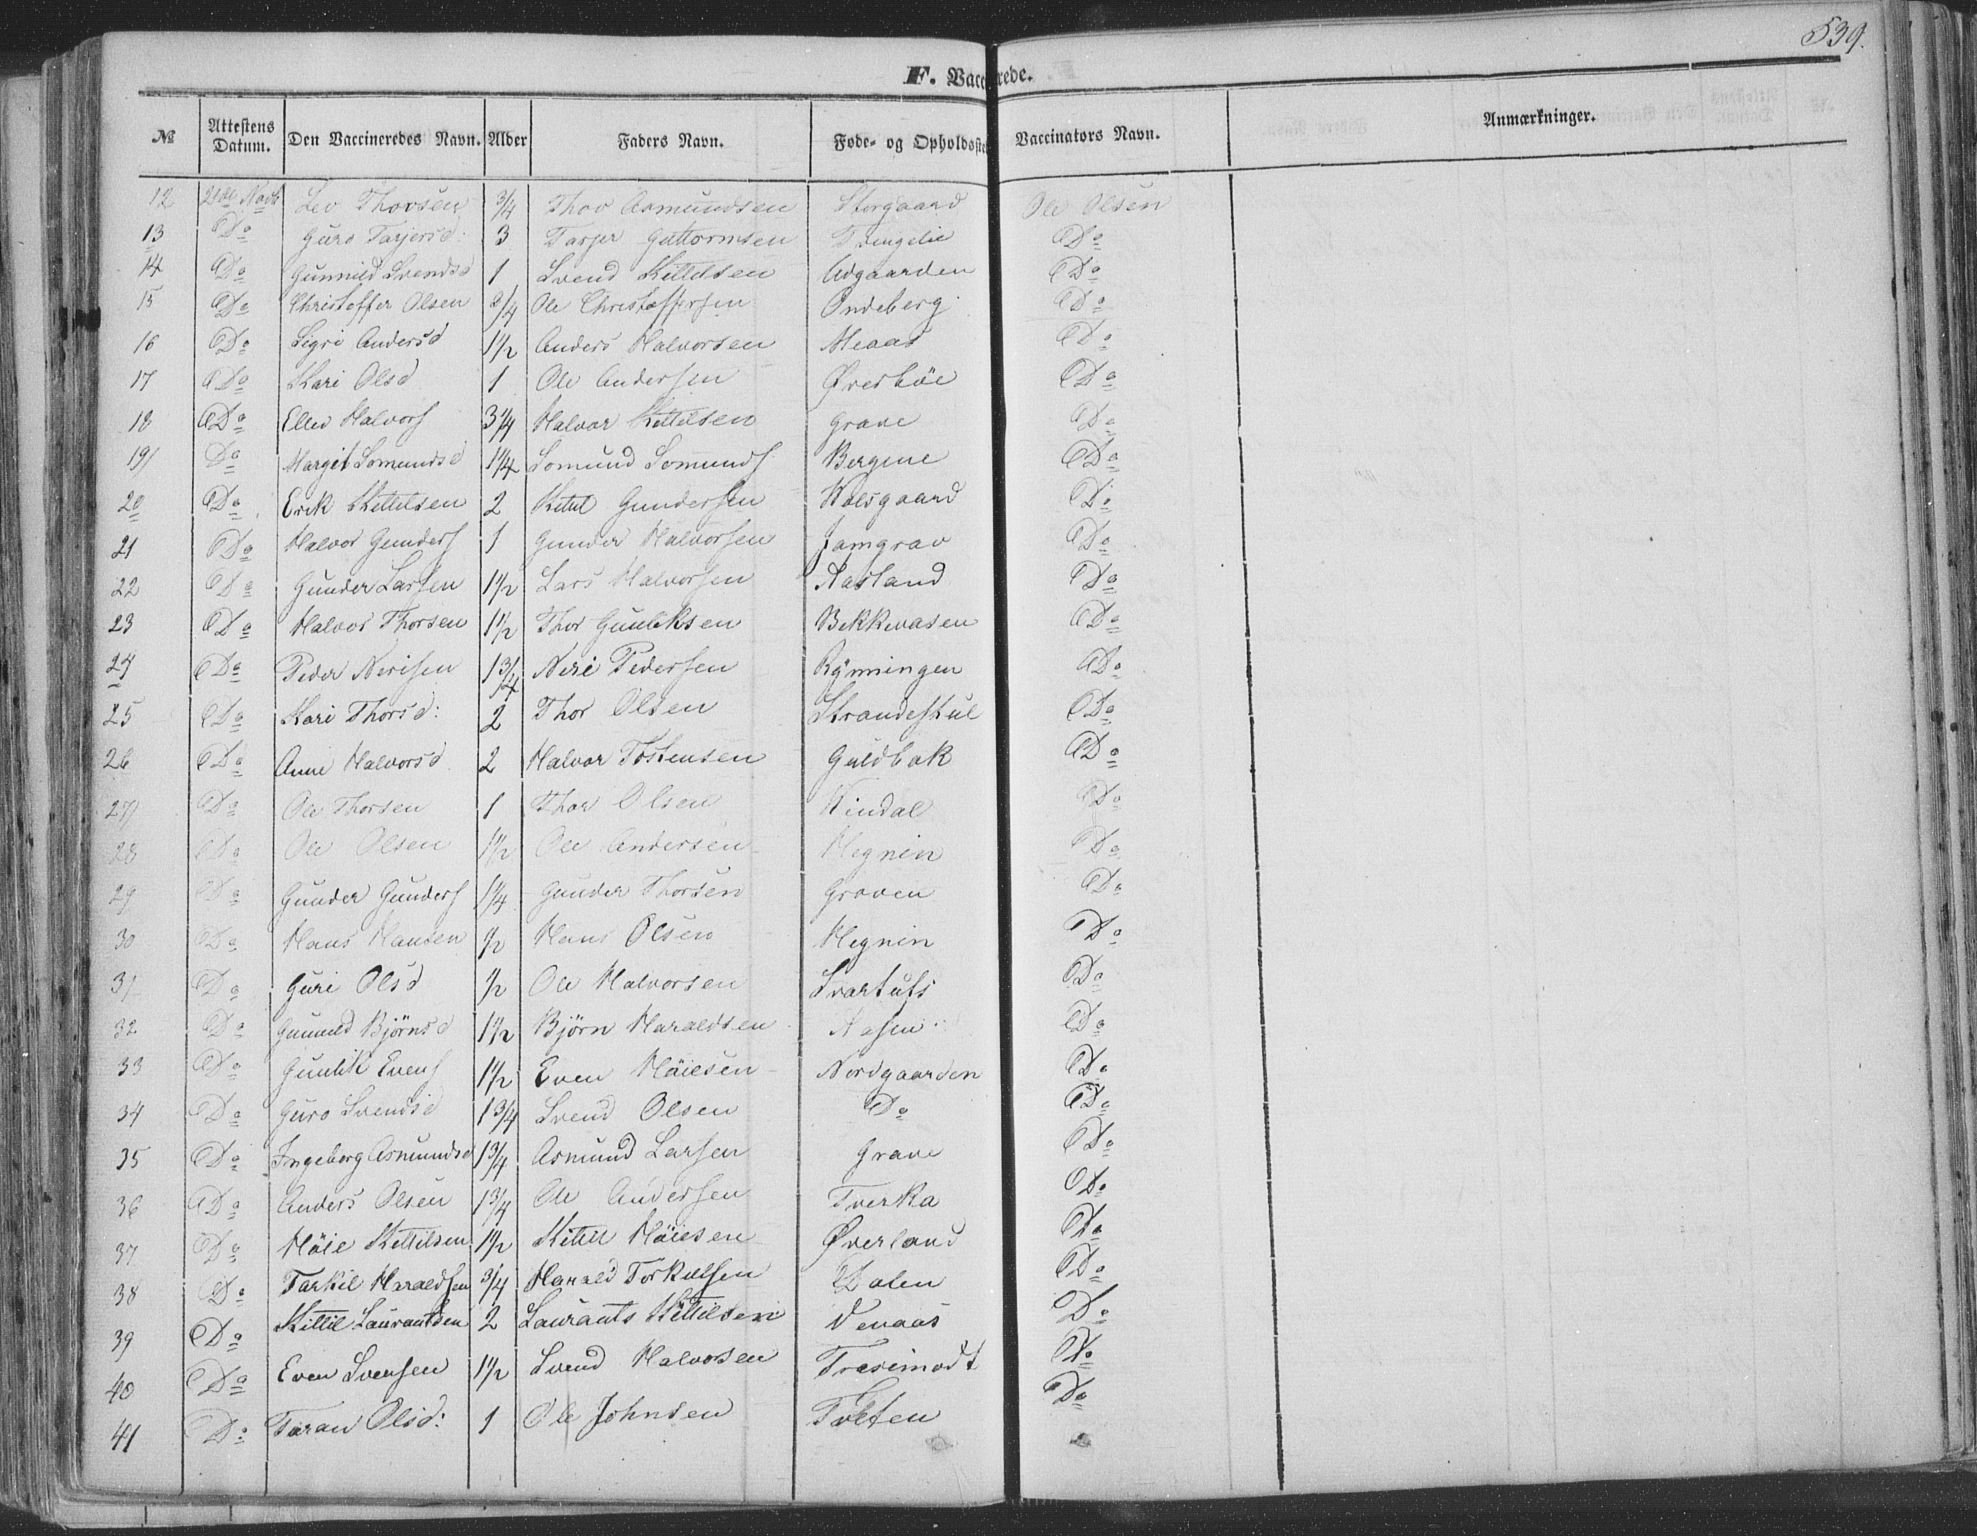 539.
F. Vaccinerede.
№ Attestens Datum. Den Vaccineredes Navn. Alder Faders Navn. Føde- og Opholdssted Vaccinators Navn. Anmærkninger.
12 Thorsen 3/4 Thov Asmundsen Storgaard Ole Olsen
13 Do Guro Tarjersd: 3 Tarjer Guttormsen Do
14 Do Gunnild Svendsd 1 Svend Kittilsen Udgaarden Do
15 Do Christoffer Olsen 3/4 Ole Christoffersen Ondeberg Do
16 Do Sigri Andersd 1 1/2 Anders Halvorsen Meaas Do
17 Do Kari Olsd 1 Ole Andersen Øverbøe Do
18 Do Ellev Halvors 3 1/4 Halvor Kittilsen Grave Do
19 Do Margit Somundsd 1 1/4 Somund Somunds Bergene Do
20 Do Erik Kittilsen 2 Kittil Gundersen Do
21 Do Halvor Gunders 1 Gunder Halvorsen Jamgrav Do
22 Do Gunder Larsen 1 1/2 Lars Halvorsen Aasland Do
23 Do Halvor Thorsen 1 1/2 Thor Gunliksen Bekkevasen Do
24 Do Peder Nerisen 1 3/4 Neri Pedersen Rymningen Do
25 Do Kari Thorsd: 2 Thor Olsen Strandestul Do
26 Do Anne Halvorsd 2 Halvor Tostensen Guldbak Do
27 Do Ole Thorsen 1 Thor Olsen Vindal Do
28 Do Ole Olsen 1 1/2 Ole Andersen Hegnin Do
29 Do Gunder Gunders 1 1/4 Gunder Thorsen Graven Do
30 Do Hans Hansen 1/2 Hans Olsen Hegnin Do
31 Do Guri Olsd 1/2 Ole Halvorsen Svartufs Do
32 Do Gunnild Bjørnsd 1 1/2 Bjørn Haraldsen Aasen Do
33 Do Gunlik Evens 1 1/2 Even Høiesen Nordgaarden Do
34 Do Guro Svendsd 1 3/4 Svend Olsen Do Do
35 Do Ingeborg Asmundsd 1 3/4 Asmund Larsen Grave Do
36 Do Anders Olsen 1 3/4 Ole Andersen Tverka Do
37 Do Høie Kittilsen 1 1/2 Kittil Høiesen Øverland Do
38 Do Tarkil Haraldsen 3/4 Harald Torkilsen Dalen Do
39 Do Kittil Laurantsen 2 Laurants Kittilsen Venaas Do
40 Do Even Svensen 1 1/2 Svend Halvorsen Træsimodt Do
41 Do Taran Olsd: 1 Ole Johnsen Tveten Do